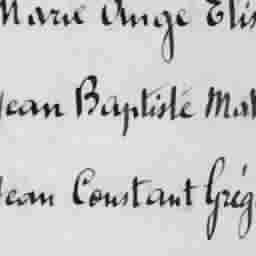 Marie Ange Elis
Jean Baptiste Mat
Jean Constant Grég